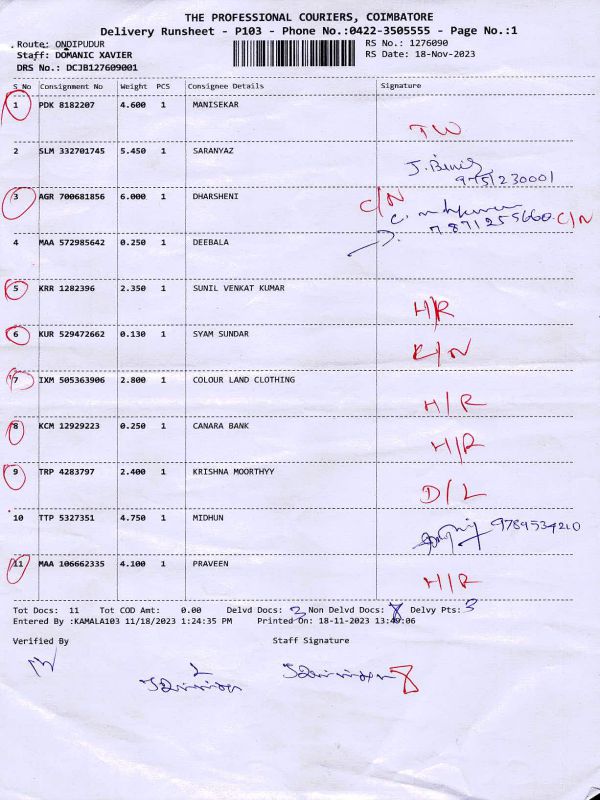 THE PROFESSIONAL COURIERS, COIMBATORE
Delivery Runsheet - P103 - Phone No.:0422-3505555 - Page No.:1
Route: ONDIPUDUR RS No.: 1276090
Staff: DOMANIC XAVIER RS Date: 18-Nov-2023
DRS No.: DCJB127609001
S No Consignment No Weight PCS Consignee Details Signature
1 PDK 8182207 4.600 1 MANISEKAR
TW
2 SLM 332701745 5.450 1 SARANYAZ
9751230001
3 AGR 700681856 6.000 1 DHARSHENI C/N
7871255660 C/N
4 MAA 572985642 0.250 1 DEEBALA
5 KRR 1282396 2.350 1 SUNIL VENKAT KUMAR
H/R
6 KUR 529472662 0.130 1 SYAM SUNDAR
7 IXM 505363906 2.800 1 COLOUR LAND CLOTHING
H/R
8 KCM 12929223 0.250 1 CANARA BANK
H/R
9 TRP 4283797 2.400 1 KRISHNA MOORTHYY
D/L
10 TTP 5327351 4.750 1 MIDHUN
9789534210
11 MAA 106662335 4.100 1 PRAVEEN
H/R
Tot Docs: 11 Tot COD Amt: 0.00 Delvd Docs: 3 Non Delvd Docs: 8 Delvy Pts: 3
Entered By :KAMALA103 11/18/2023 1:24:35 PM Printed On: 18-11-2023 13:49:06
Verified By Staff Signature
8